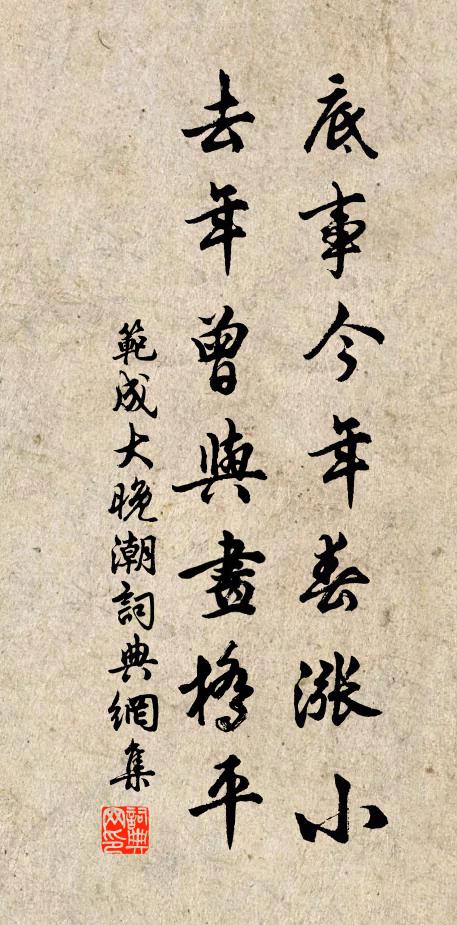 底事今年春漲小
去年曾與畫橋平
範成大晚潮詞典網集
詞典網印